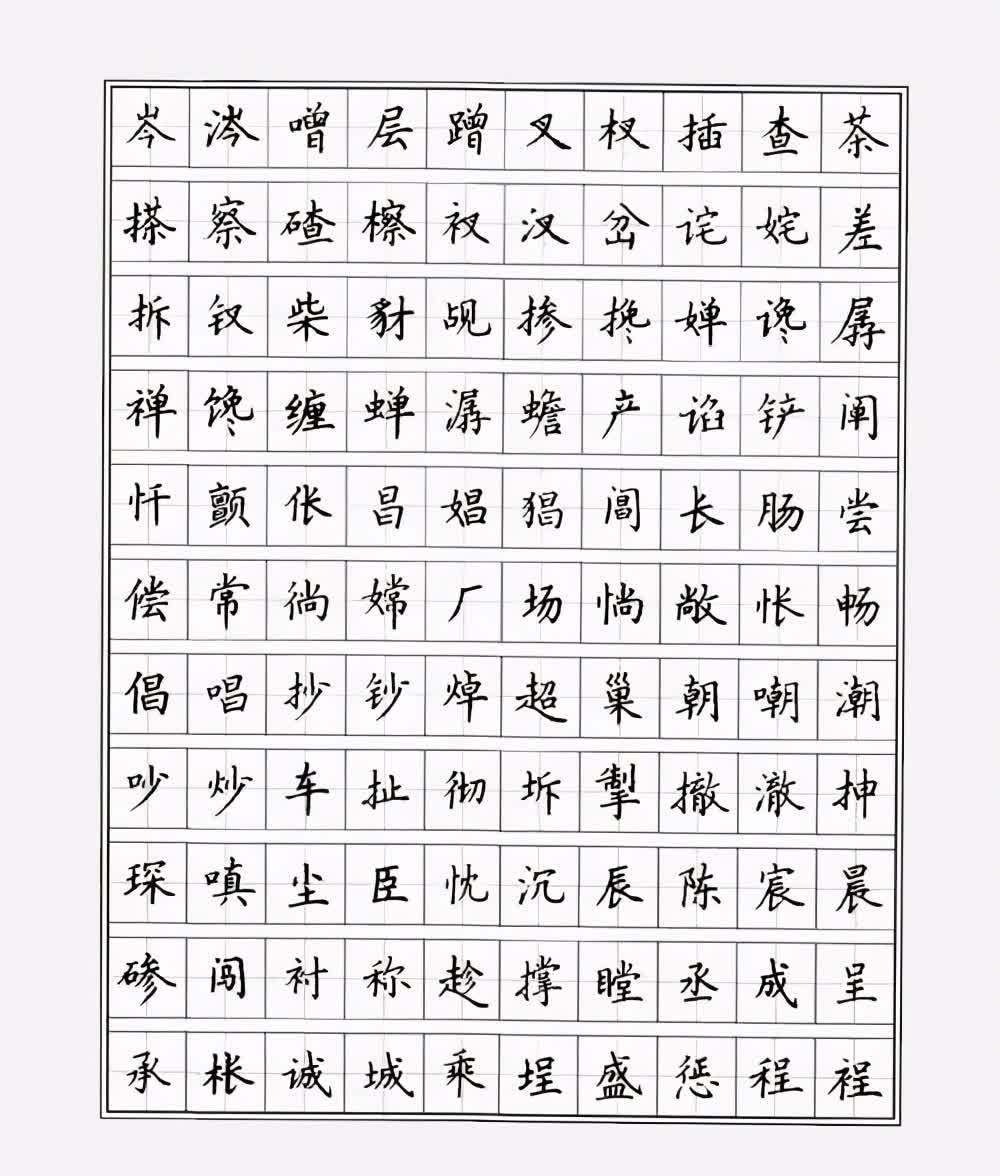 岑涔噌层蹭叉杈插查茶
搽察碴檫衩汊岔诧姹差
拆钗柴豺觇掺搀婵谗孱
禅馋缠蝉潺蟾产谄铲阐
忏颤伥昌娼猖阊长肠尝
偿常徜嫦厂场惝敞怅畅
倡唱抄钞焯超巢朝嘲潮
吵炒车扯彻坼掣撤澈抻
琛嗔尘臣忱沉辰陈宸晨
碜闯衬称趁撑瞠丞成呈
承枨诚城乘埕盛惩程裎